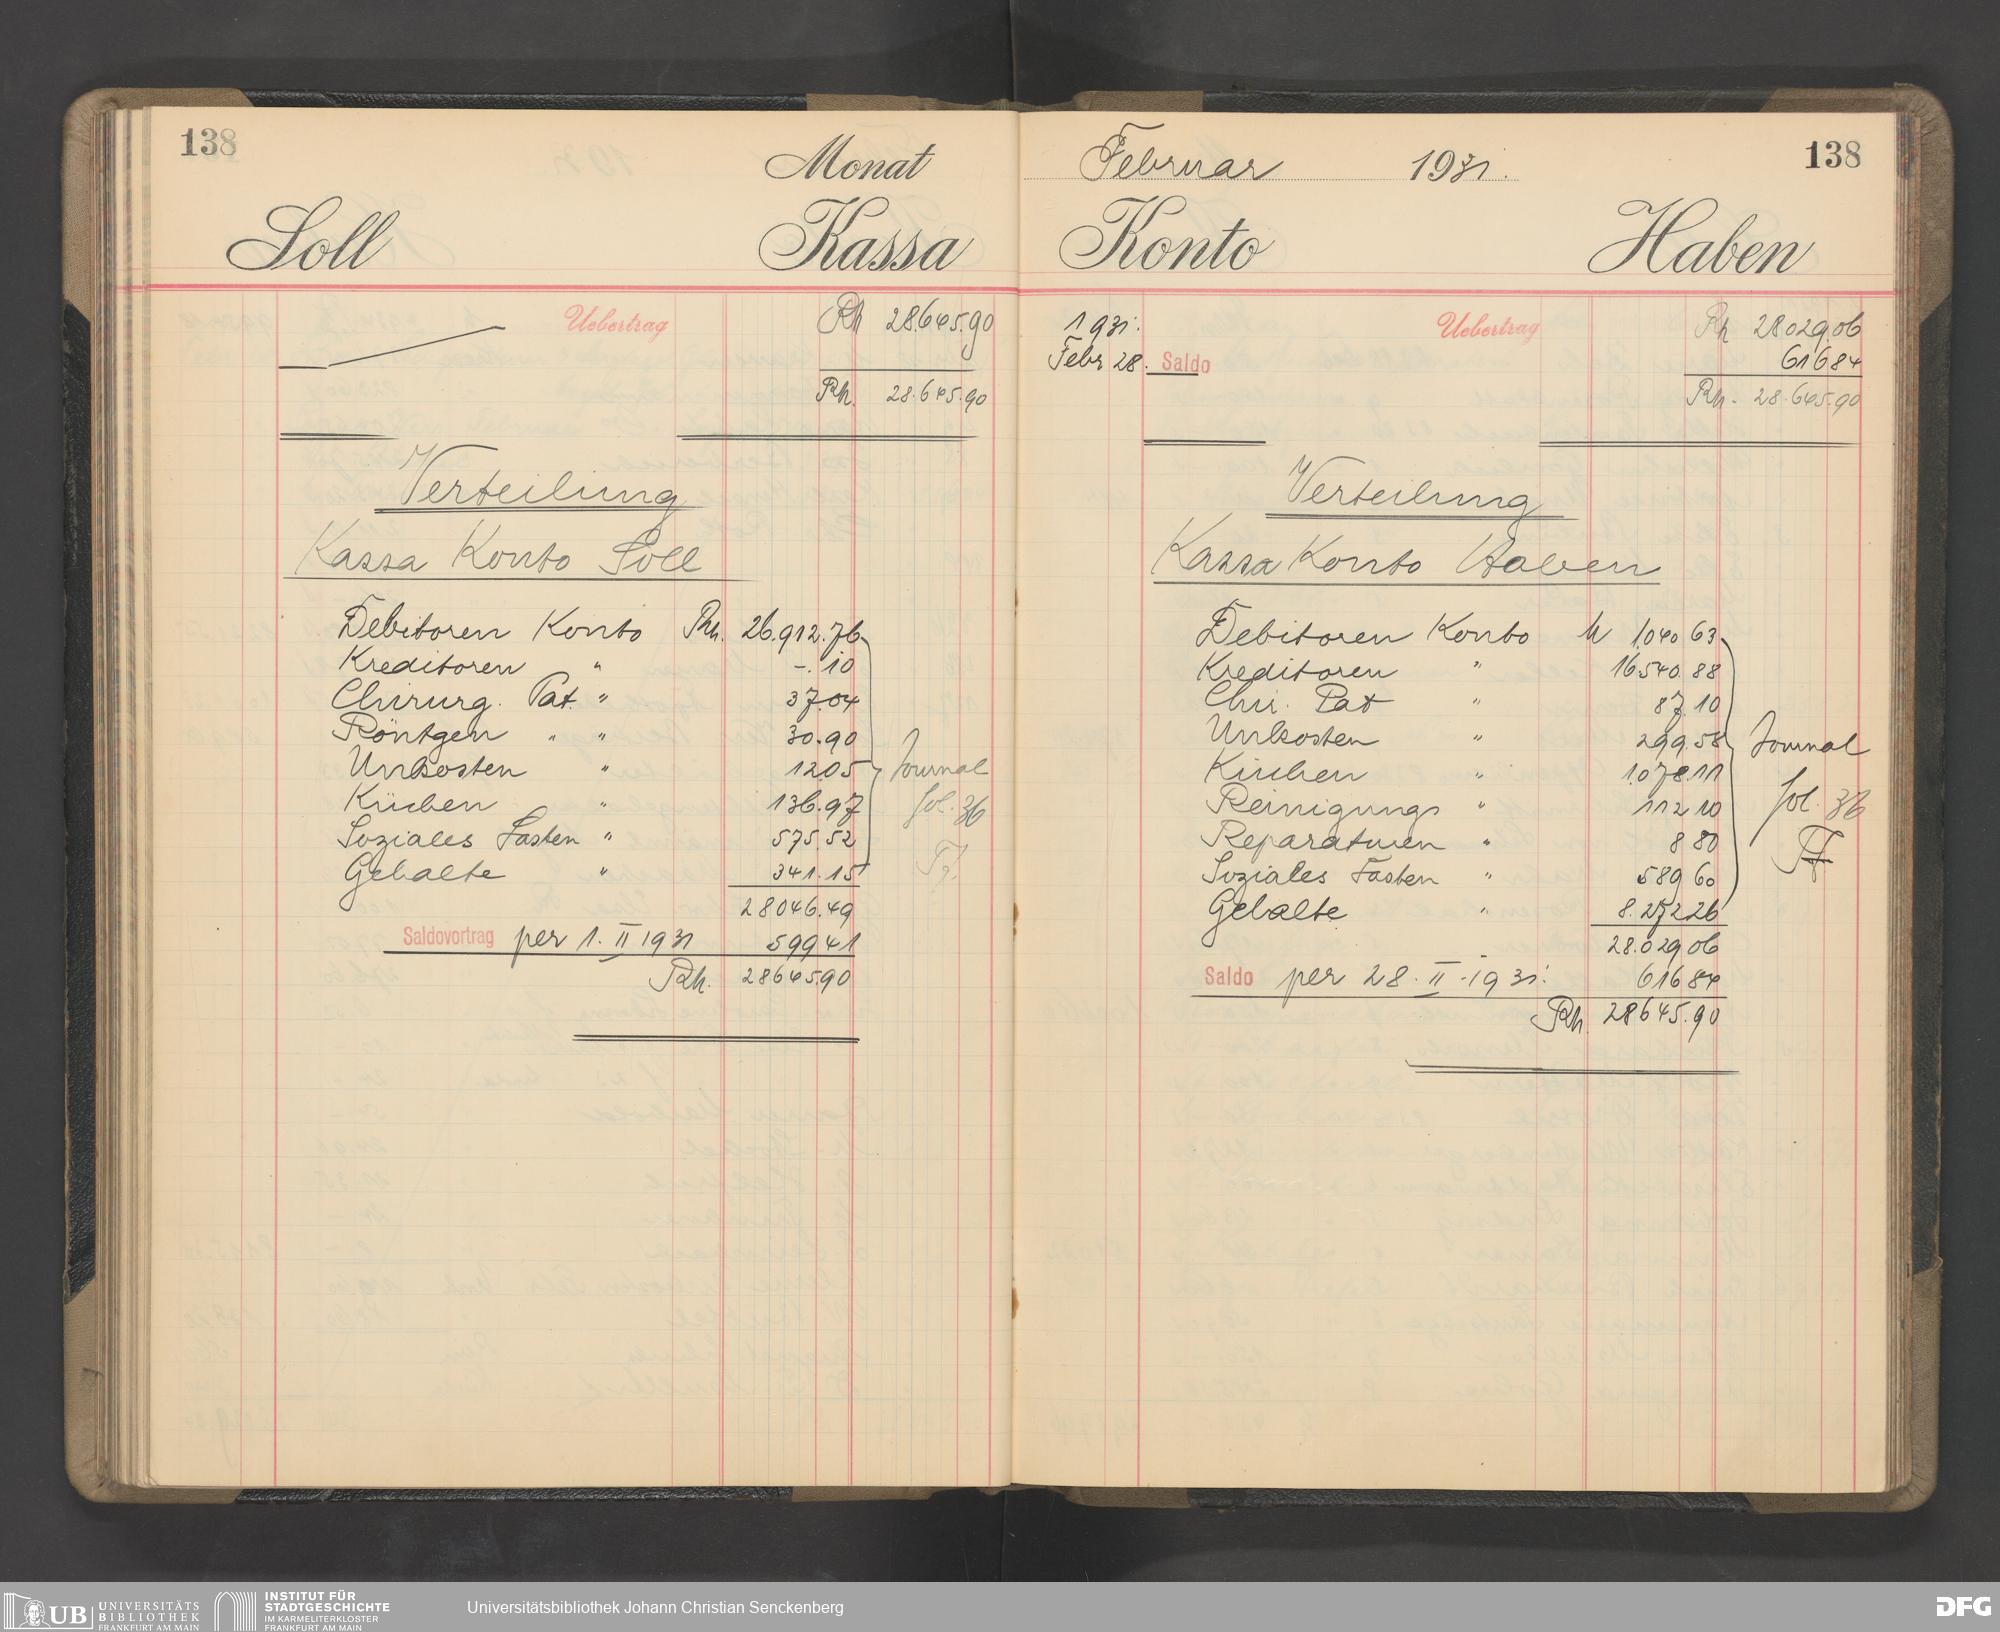 138
Monat
Soll Kassa
Uebertrag Rh 28645.90
Rh. 28.645.90
Verteilung
Kassa Konto Soll
Debitoren Konto Rh. 26.912.76
Kreditoren " -.10
Chirurg. Pat. " 37.04
Röntgen " " 30.90
Unkosten " 12.05
Küchen " 136.97
Soziales Lasten " 575.52
Gehalte " 341.15
Journal
fol. 36
28046.49
Saldovortrag per 1. II 1931 599 41
Rh. 28645.90
Februar 1931. 138
Konto Haben
1931. Uebertrag Rh 28029.06
Febr 28. Saldo 616 84
Rh. 28.645.90
Verteilung
Kassa Konto Haben
Debitoren Konto M 1040 63
Kreditoren " 16540.88
Chir. Pat " 87.10
Unkosten " 299.58
Küchen " 1078.11
Reinigungs " 112 10
Reparaturen " 8 80
Soziales Lasten " 589 60
Gehalte " 8.272.26
Journal
fol. 36
28.029 06
Saldo per 28. II. 1931. 616 84
Rh 28645.90
UB UNIVERSITÄTS
BIBLIOTHEK
FRANKFURT AM MAIN
INSTITUT FÜR
STADTGESCHICHTE
IM KARMELITERKLOSTER
FRANKFURT AM MAIN
Universitätsbibliothek Johann Christian Senckenberg
DFG